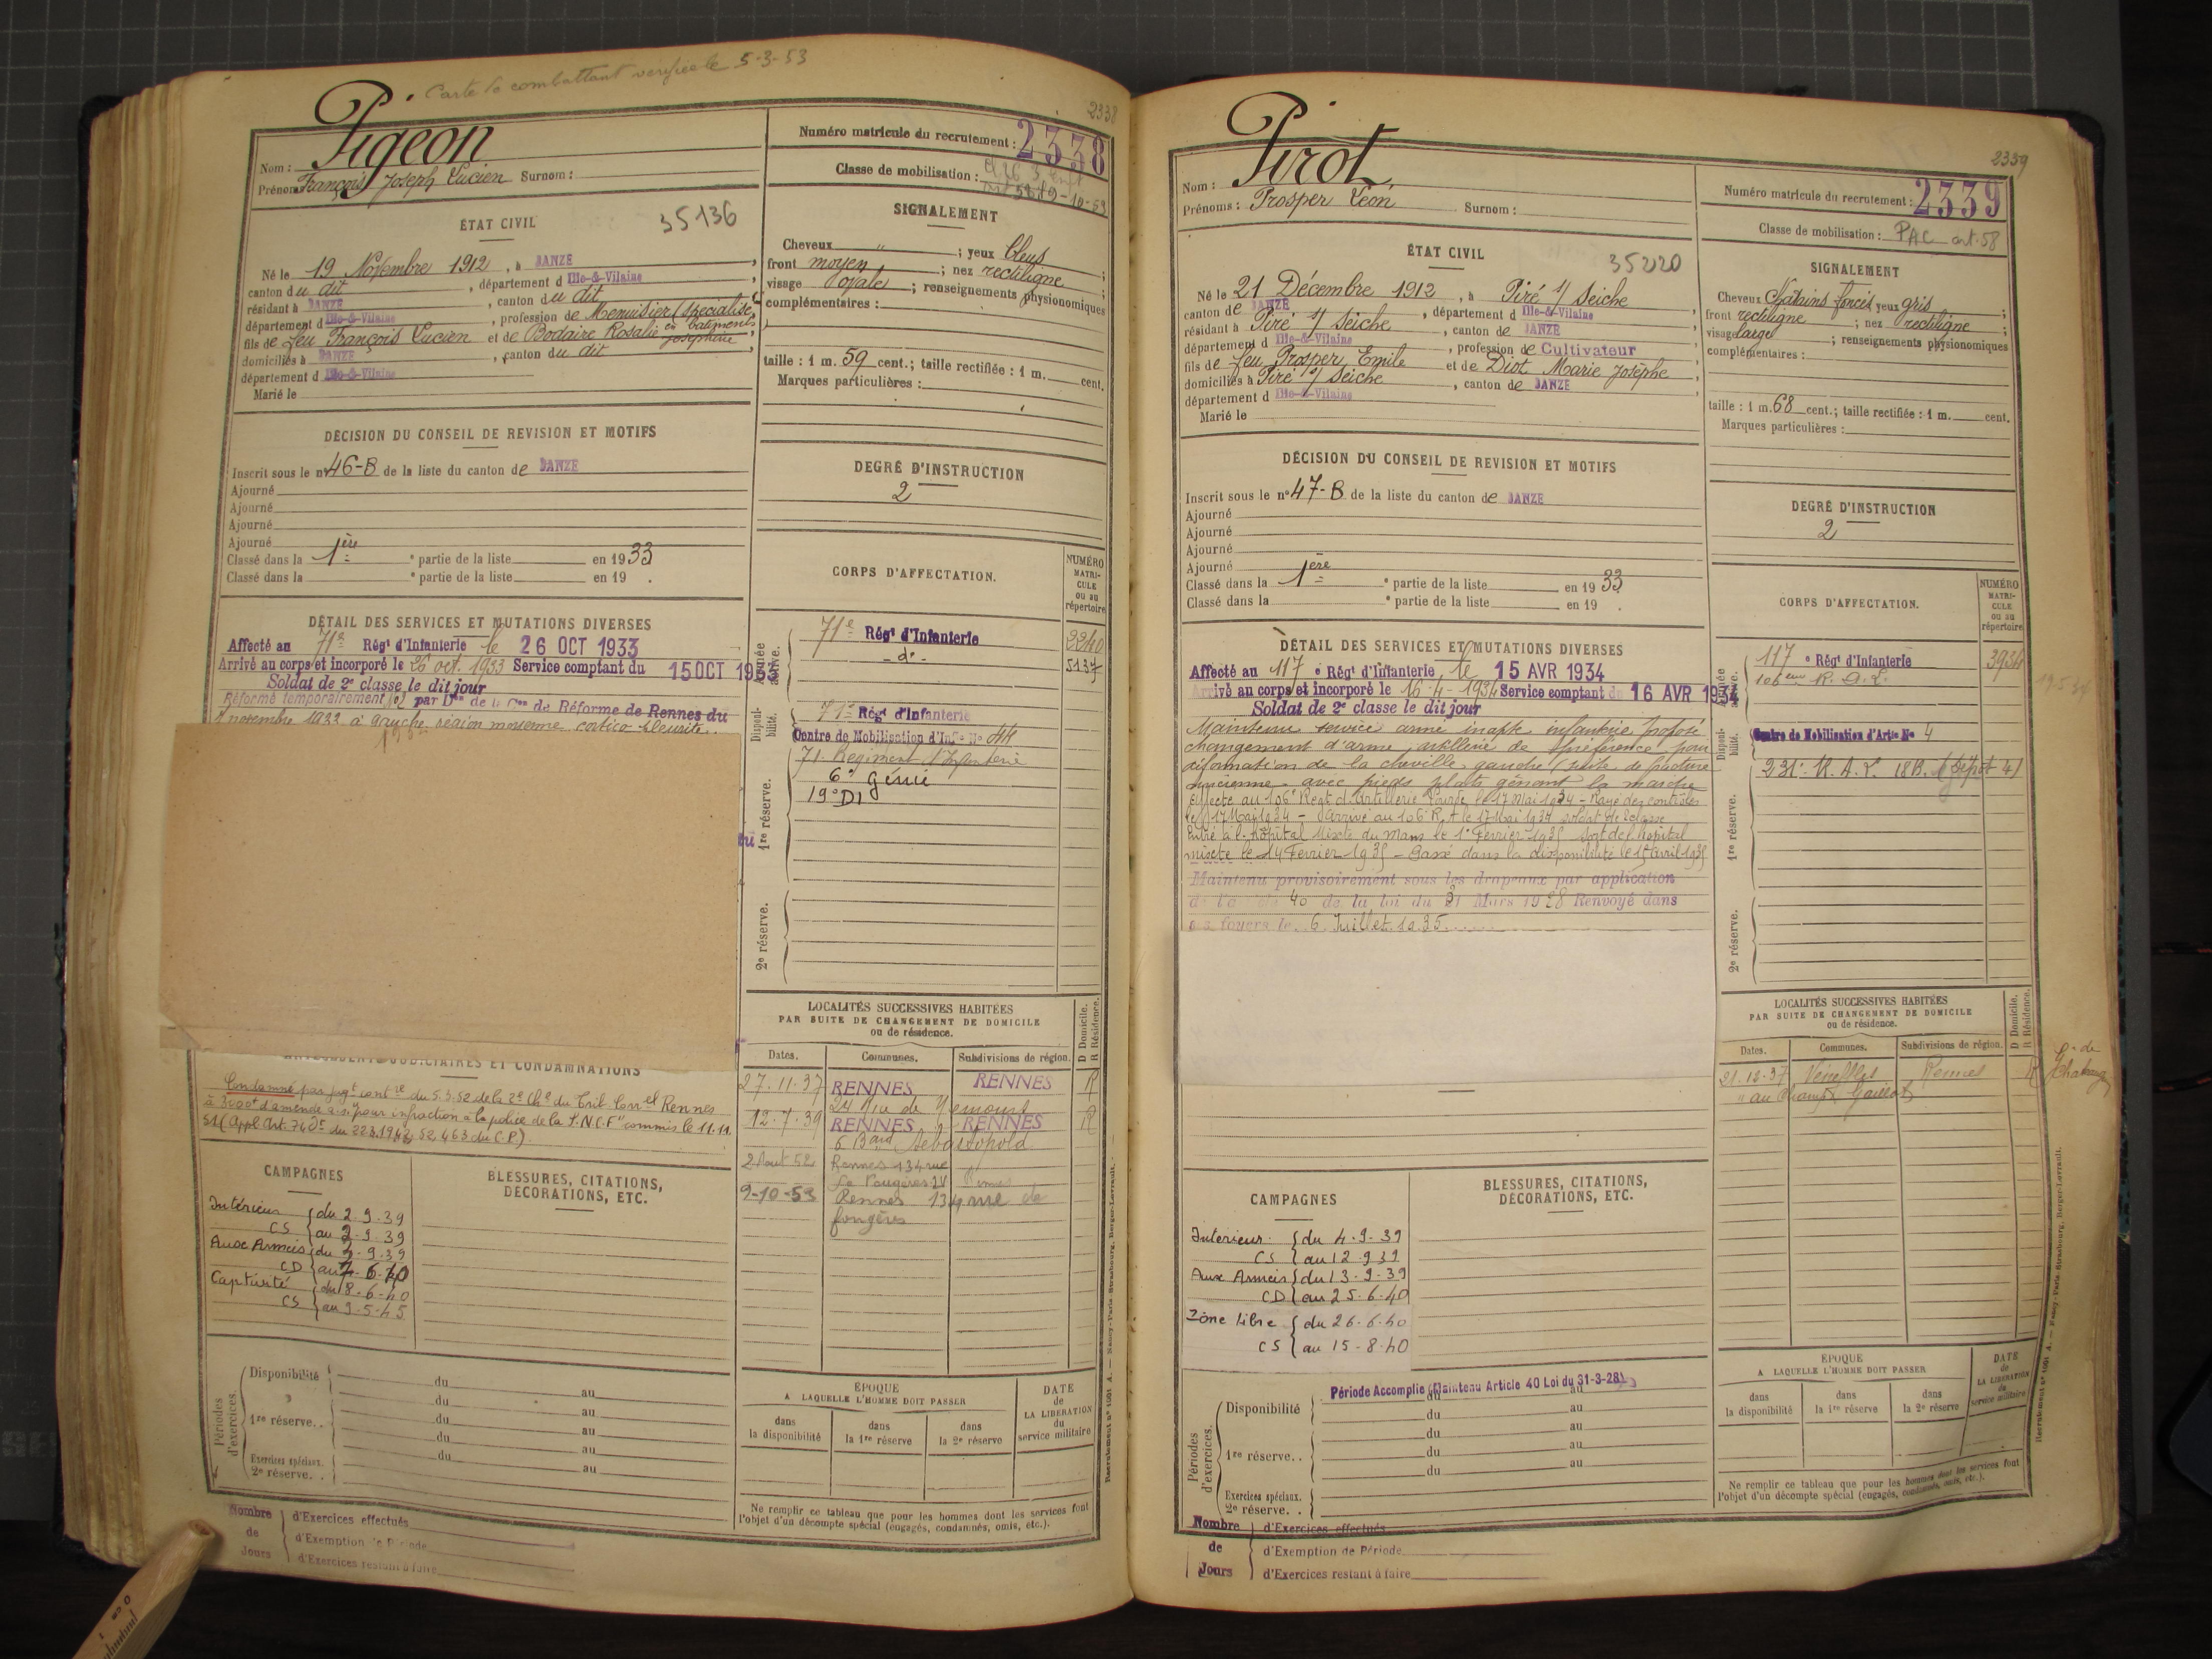 Carte de combattant vérifiée le 5-3-53
2338
Nom : Pigeon
Prénoms François Joseph Lucien Surnom :
Numéro matricule du recrutement : 2338
Classe de mobilisation :
ÉTAT CIVIL
35136
Né le 19 Novembre 1912, à JANZE
canton du dit, département d Ille-&-Vilaine
résidant à JANZE, canton du dit
département d Ille-&-Vilaine, profession de Menuisier (spécialisé en batiments
fils de feu François Lucien et de Bodaire Rosalie Joséphine
domiciliés à JANZE, canton du dit
département d Ille-&-Vilaine
Marié le
SIGNALEMENT
Cheveux " ; yeux bleus ;
front moyen ; nez rectiligne ;
visage ovale ; renseignements physionomiques
complémentaires :
taille : 1 m. 59 cent.; taille rectifiée : 1 m. cent.
Marques particulières :
DÉCISION DU CONSEIL DE REVISION ET MOTIFS
Inscrit sous le n° 46-B de la liste du canton de JANZE
Ajourné
Ajourné
Ajourné
Ajourné
Classé dans la 1ère e partie de la liste en 1933
Classé dans la e partie de la liste en 19 .
DEGRÉ D'INSTRUCTION
2
DÉTAIL DES SERVICES ET MUTATIONS DIVERSES
Affecté au 71e Régt d'Infanterie le 26 OCT 1933
Arrivé au corps et incorporé le 26 oct. 1933 Service comptant du 15 OCT 1933
Soldat de 2e classe le dit jour
Réformé temporairement par Don de la Con de Réforme de Rennes du
7 novembre 1933 à gauche région moyenne cortico-pleurite.
CORPS D'AFFECTATION.
NUMÉRO MATRICULE ou au répertoire
Année active.
71e Régt d'Infanterie
2240
- do -
5137
Disponibilité.
71e Régt d'Infanterie
Centre de Mobilisation d'Infie No 44
1re réserve.
71. Régiment d'Infanterie
6e génie
19e DI
2e réserve.
LOCALITÉS SUCCESSIVES HABITÉES
PAR SUITE DE CHANGEMENT DE DOMICILE
ou de résidence.
D Domicile.
R Résidence.
Dates. Communes. Subdivisions de région.
27-11-37 RENNES RENNES R
24 Rue de Nemours
12-7-39 RENNES RENNES R
6 Bard Sébastopold
2 Aout 52 Rennes 134 rue
de Fougères IV Rennes
9-10-53 Rennes 134 rue de
fougères
ANTÉCÉDENTS JUDICIAIRES ET CONDAMNATIONS
Condamné par jugt contre du 5.3.52 de la 2e Che du Trib. Correl Rennes
à 3000f d'amende a.s. pour infraction à la police de la S.N.C.F" commis le 11.11.
51 (appl. Art. 74 Dt du 22.3.1942, 52, 463 du C.P.).
CAMPAGNES
BLESSURES, CITATIONS, DÉCORATIONS, ETC.
Intérieur { du 2.9.39
CS { au 2.9.39
Aux Armées { du 3.9.39
CD { au 7.6.40
Captivité { du 8.6.40
CS { au 9.5.45
Périodes d'exercices.
Disponibilité du au
du au
1re réserve. . du au
du au
Exercices spéciaux. du au
2e réserve. .
ÉPOQUE
A LAQUELLE L'HOMME DOIT PASSER
dans la disponibilité
dans la 1re réserve
dans la 2e réserve
DATE de LA LIBÉRATION du service militaire
Ne remplir ce tableau que pour les hommes dont les services font
l'objet d'un décompte spécial (engagés, condamnés, omis, etc.).
Nombre de Jours
d'Exercices effectués
d'Exemption de Période
d'Exercices restant à faire
Recrutement n° 1001 A. — Nancy-Paris-Strasbourg, Berger-Levrault.
2339
Nom : Pirot
Prénoms : Prosper Léon Surnom :
Numéro matricule du recrutement : 2339
Classe de mobilisation : PAC art. 58
ÉTAT CIVIL
35220
Né le 21 Décembre 1912, à Piré s/ Seiche
canton de JANZE, département d Ille-&-Vilaine
résidant à Piré s/ Seiche, canton de JANZE
département d Ille-&-Vilaine, profession de Cultivateur
fils de feu Prosper Emile et de Diot Marie Josèphe
domiciliés à Piré s/ Seiche, canton de JANZE
département d Ille-&-Vilaine
Marié le
SIGNALEMENT
Cheveux châtains foncés yeux gris ;
front rectiligne ; nez rectiligne ;
visage large ; renseignements physionomiques
complémentaires :
taille : 1 m. 68 cent.; taille rectifiée : 1 m. cent.
Marques particulières :
DÉCISION DU CONSEIL DE REVISION ET MOTIFS
Inscrit sous le n° 47-B de la liste du canton de JANZE
Ajourné
Ajourné
Ajourné
Ajourné
Classé dans la 1ère e partie de la liste en 1933
Classé dans la e partie de la liste en 19 .
DEGRÉ D'INSTRUCTION
2
DÉTAIL DES SERVICES ET MUTATIONS DIVERSES
Affecté au 117 e Régt d'Infanterie, le 15 AVR 1934
Arrivé au corps et incorporé le 16-4-1934 Service comptant du 16 AVR 1934
Soldat de 2e classe le dit jour
Maintenu service armé inapte infanterie proposé
changement d'arme, artillerie de préférence pour
déformation de la cheville gauche (suite de fracture
ancienne avec pieds plats gênant la marche
Affecté au 106e Regt d'artillerie lourde, le 17 Mai 1934 - Rayé des contrôles
le 17 Mai 1934 - Arrivé au 106e R.A. le 17 Mai 1934 soldat de 2e classe
Entré à l'hôpital Mixte du mans le 1er Fevrier 1935 sort de l'hopital
mixte le 14 Fevrier 1935 - Passé dans la disponibilité le 15 avril 1935
Maintenu provisoirement sous les drapeaux par application
de la 40 de la loi du 31 Mars 1928 Renvoyé dans
ses foyers le 6 Juillet 1935
CORPS D'AFFECTATION.
NUMÉRO MATRICULE ou au répertoire
Année active.
117 e Régt d'Infanterie
3934
106eme R.A.L.
Disponibilité.
Centre de Mobilisation d'Artie No 4
1re réserve.
231e R.A.L. 18B. (dépôt 4)
2e réserve.
LOCALITÉS SUCCESSIVES HABITÉES
PAR SUITE DE CHANGEMENT DE DOMICILE
ou de résidence.
D Domicile.
R Résidence.
Dates. Communes. Subdivisions de région.
21-12-37 Rennes R
" au Champ Gaillot
CAMPAGNES
BLESSURES, CITATIONS, DÉCORATIONS, ETC.
Intérieur { du 4.9.39
CS { au 12.9.39
Aux Armées { du 13.9.39
CD { au 25.6.40
Zone Libre { du 26.6.40
CS { au 15.8.40
Périodes d'exercices.
Période Accomplie (Maintenu Article 40 Loi du 31-3-28)
Disponibilité du au
du au
1re réserve. . du au
du au
du au
Exercices spéciaux.
2e réserve. .
ÉPOQUE
A LAQUELLE L'HOMME DOIT PASSER
dans la disponibilité
dans la 1re réserve
dans la 2e réserve
DATE de LA LIBÉRATION du service militaire
Ne remplir ce tableau que pour les hommes dont les services font
l'objet d'un décompte spécial (engagés, condamnés, omis, etc.).
Nombre de Jours
d'Exercices effectués
d'Exemption de Période
d'Exercices restant à faire
Recrutement n° 1001 A. — Nancy-Paris-Strasbourg, Berger-Levrault.